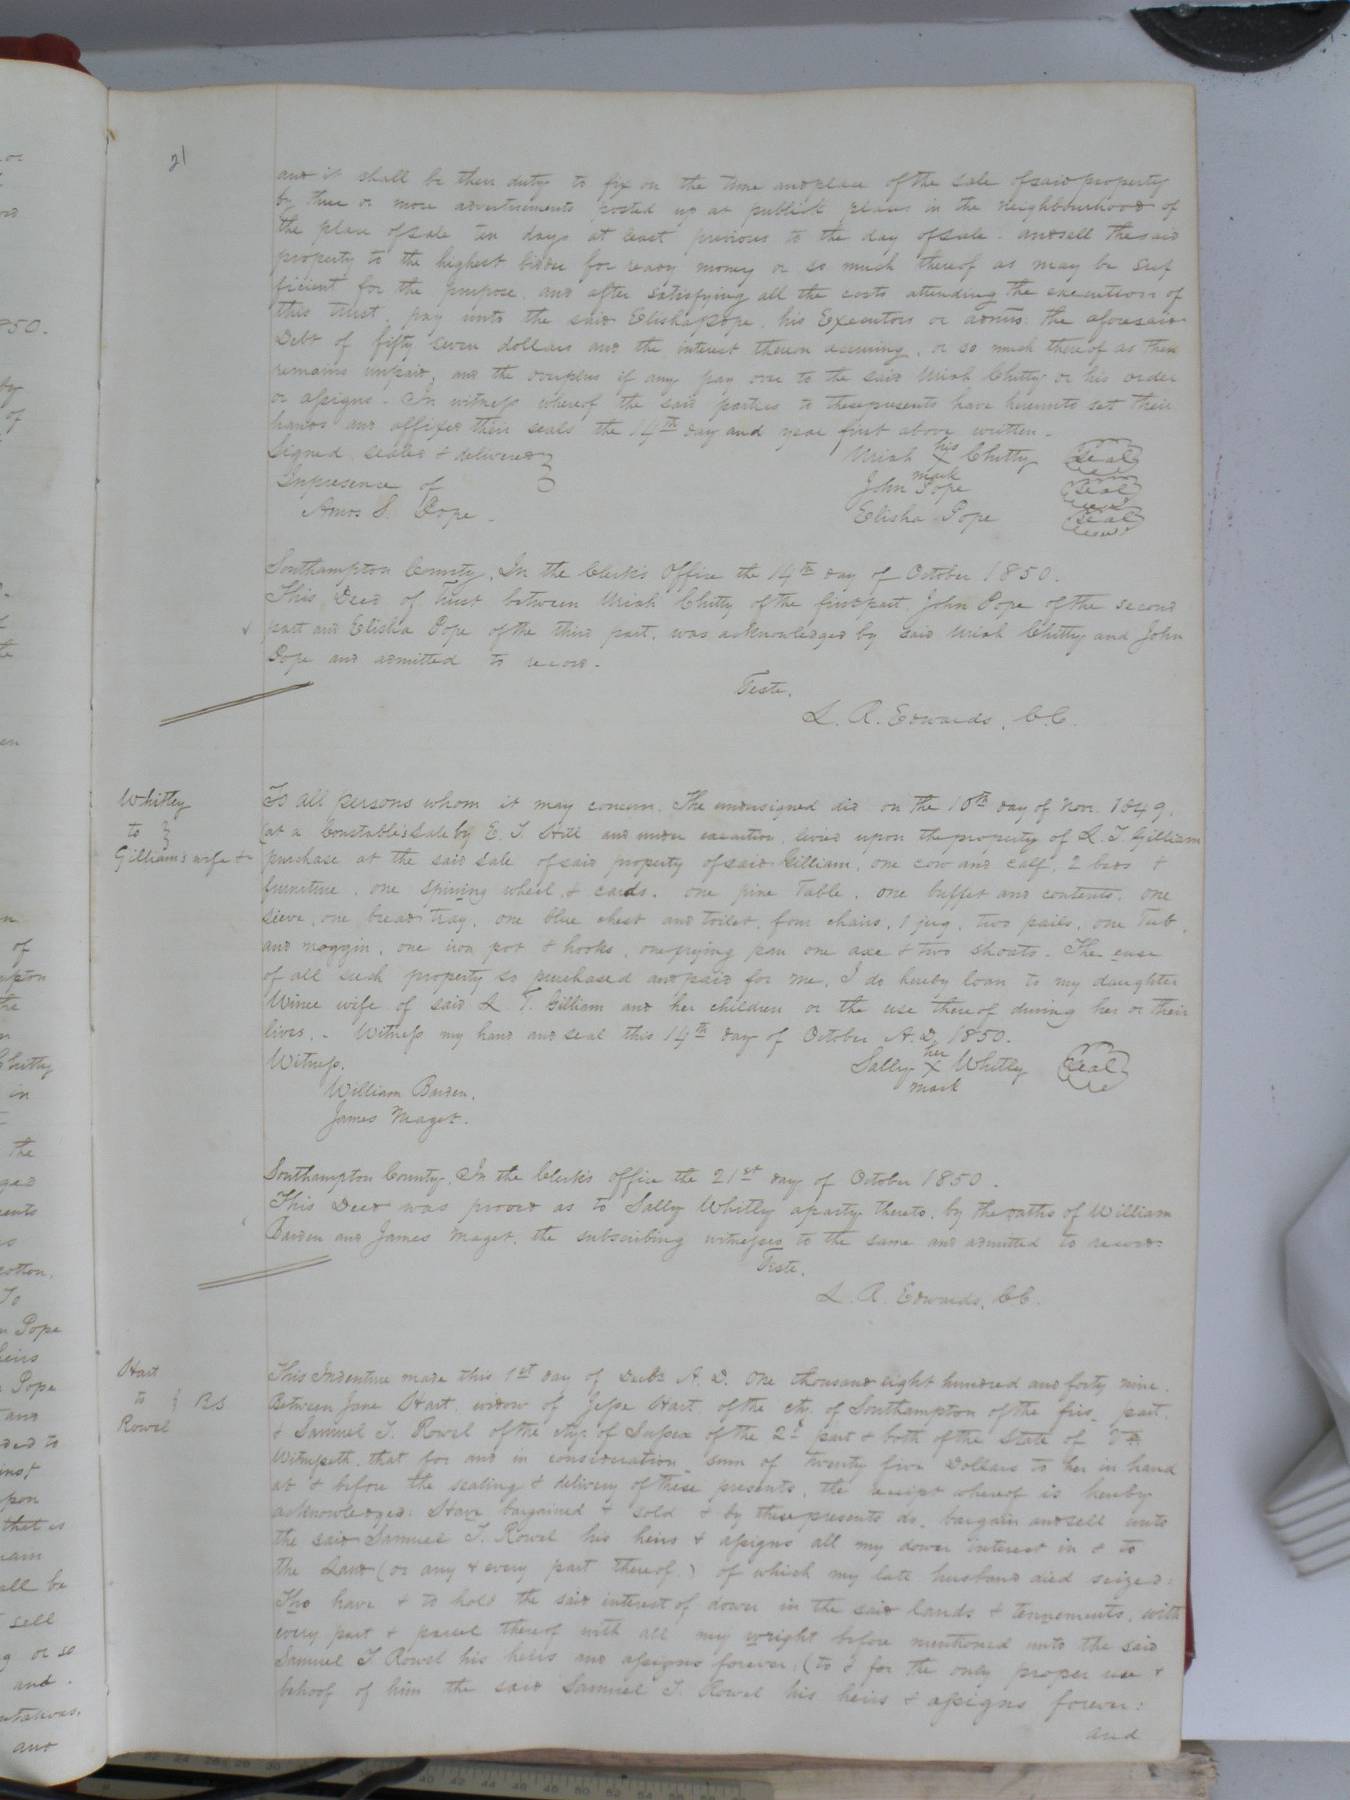 21
and it shall be their duty to fix on the time and place of the sale of said property
by three or more advertisements posted up at publick places in the neighbourhood of
the place of sale ten days at least previous to the day of sale. and sell the said
property to the highest bidder for ready money or so much thereof as may be suf
ficient for the purpose. and after satisfying all the costs attending the execution of
this trust, pay unto the said Elisha Pope, his Executors or admrs. the aforesaid
Debt of fifty seven dollars and the interest thereon accruing, or so much thereof as then
remains unpaid, and the overplus if any pay over to the said Uriah Chitty or his order
or assigns. In witness whereof the said parties to these presents have hereunto set their
hands and affixed their seals the 14th day and year first above written.
Signed sealed & delivered
In presence of
Amos S. Pope.
Uriah his X mark Chitty Seal
John Pope Seal
Elisha Pope Seal
Southampton County, In the Clerk's Office the 14th day of October 1850.
This Deed of Trust between Uriah Chitty of the first part, John Pope of the second
part and Elisha Pope of the third part, was acknowledged by said Uriah Chitty and John
Pope and admitted to record.
Teste.
L. R. Edwards, C.C.
Whitley
to
Gilliam's wife &c
To all persons whom it may concern. The undersigned did on the 10th day of Nov. 1849,
(at a Constable's sale by E. T. Hill and under execution, levied upon the property of L. T. Gilliam
purchase at the said sale of said property of said Gilliam, one cow and calf, 2 beds &
furniture, one spining wheel & cards, one pine Table, one buffet and contents, one
sieve, one bread tray, one blue chest and toilet, four chairs, 1 jug, two pails, one Tub,
and noggin, one iron pot & hooks, one frying pan one axe & two shoats. The
of all such property so purchased and paid for me, I do hereby loan to my daughter
Wince wife of said L. T. Gilliam and her children or the use thereof during her or their
lives. - Witness my hand and seal this 14th day of October A.D. 1850.
Witness.
William Barden.
James Maget.
Sally her X mark Whitly Seal
Southampton County. In the Clerk's office the 21st day of October 1850.
This Deed was proved as to Sally Whitly a party thereto, by the oaths of William
Barden and James Maget, the subscribing witnesses to the same and admitted to record.
Teste.
L. R. Edwards, C.C.
Hart
to B.S
Rowel
This Indenture made this 1st day of Decbr A. D. One thousand eight hundred and forty nine.
Between Jane Hart, widow of Jesse Hart of the cty. of Southampton of the firs part.
& Samuel T. Rowel of the cty of Sussex of the 2d part & both of the State of Va
Witnesseth that for and in consideration sum of twenty five Dollars to her in hand
at & before the sealing & delivery of these presents, the receipt whereof is hereby
acknowledged: Have bargained & sold & by these presents do bargain and sell unto
the said Samuel T. Rowel his heirs & assigns all my dower interest in & to
the Land (or any & every part thereof) of which my late husband died seized:
To have & to hold the said interest of dower in the said lands & tennements, with
every part & parcel thereof with all my wright before mentioned unto the said
Samuel T Rowel his heirs and assigns forever, (to & for the only proper use &
behoof of him the said Samuel T. Rowel his heirs & assigns forever:
and